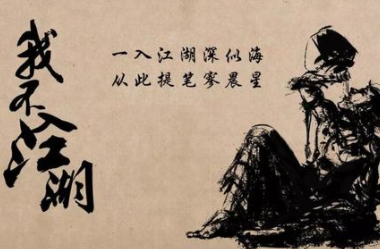 我不入江湖
一入江湖深似海
从此提笔寥晨星